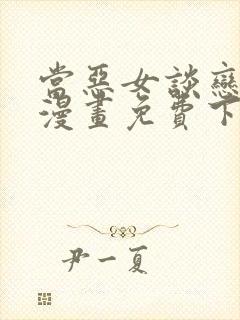 當惡女談戀
漫畫免費下
尹一夏